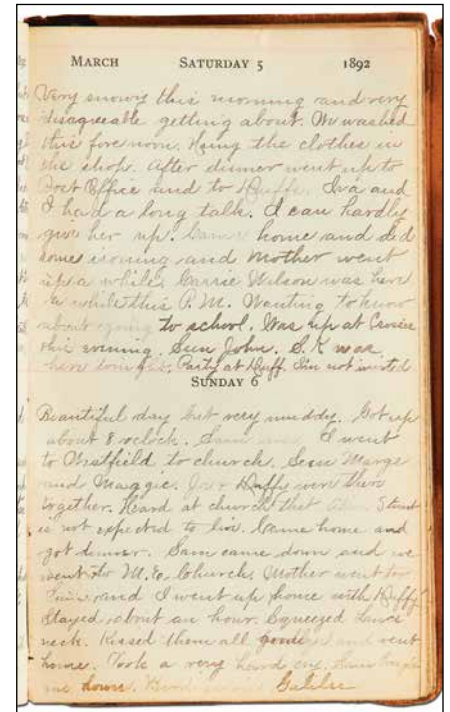 MARCH SATURDAY 5 1892
Very snowy this morning and very
disagreeable getting about. We washed
this forenoon. Hung the clothes in
the shop. After dinner went up to
Post Office and to Huffs. Iva and
I had a long talk. I can hardly
give her up. Came home and did
some ironing and Mother went
up a while. Carrie Wilson was here
a while this P.M. Wanting to know
about going to school. Was up at
this evening. Seen John. S.K was
here Party at Huff. Sin not invited
SUNDAY 6
Beautiful day but very muddy. Got up
about 8 oclock. I went
to Westfield to church. Seen Marge
and Maggie. Huffs were there
together. Heard at church that
is not expected to live. Came home and
got dinner. Sam came down and we
went to M.E. Church. Mother went to
and I went up home with Huffs
Stayed about an hour. Squeezed
neck. Kissed them all and went
home. Took a very hard cry.
me down.